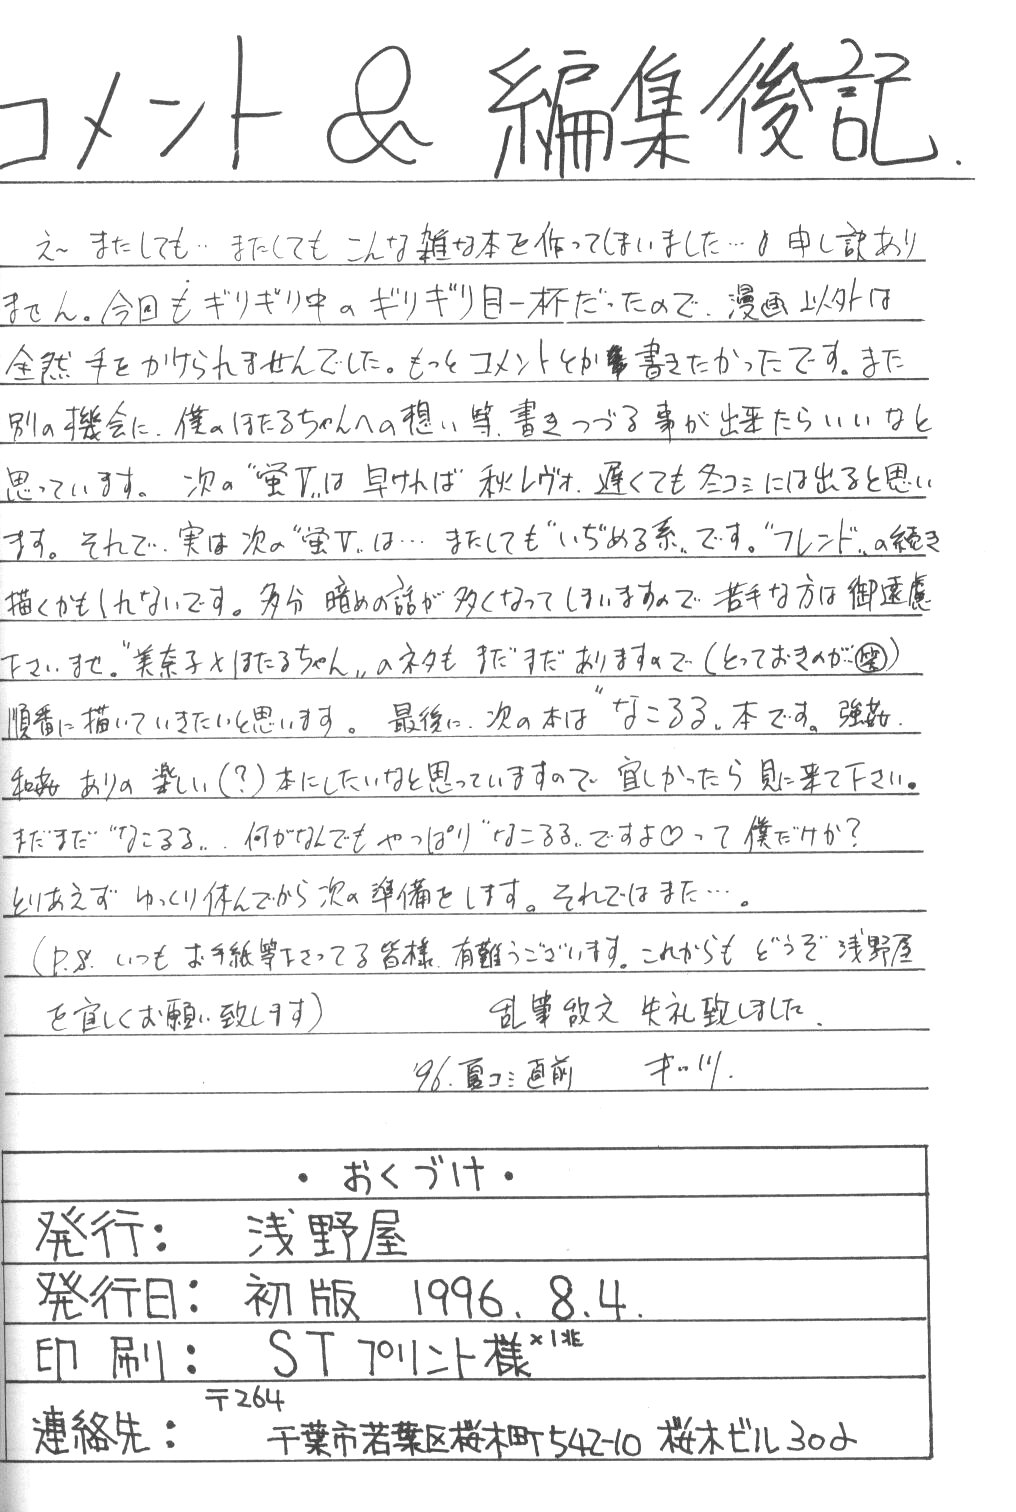 コメント & 編集後記.
え〜 またしても‥ またしても こんな 雑な本を 作ってしまいました… 申し訳あり
ません。今回も ギリギリ中の ギリギリ目一杯だったので、漫画以外は
全然 手を かけられませんでした。もっと コメントとか 書きたかったです。また
別の機会に、僕のほたるちゃんへの想い等、書きつづる事が出来たらいいなと
思っています。 次の“蛍Ⅴ„は 早ければ 秋レヴォ、遅くても冬コミには出ると思い
ます。それで、実は次の“蛍Ⅴ„は… またしても“いぢめる系„です。“フレンド„の続き
描くかもしれないです。多分 暗めの話が多くなってしまいますので 苦手な方は御遠慮
下さいませ。“美奈子×ほたるちゃん„のネタも まだまだありますので(とっておきのが…笑)
順番に描いていきたいと思います。 最後に、次の本は“なこるる„本です。強姦、
和姦 ありの 楽しい(?)本にしたいなと思っていますので 宜しかったら見に来て下さい。
まだまだ“なこるる„、何がなんでも やっぱり“なこるる„ですよ♡って僕だけか?
とりあえず ゆっくり休んでから次の準備をします。それではまた…。
(P.S. いつも お手紙等下さってる皆様、有難うございます。これからも どうぞ 浅野屋
を宜しくお願い致します) 乱筆散文 失礼致しました、
'96.夏コミ直前 キッツ.
・おくづけ・
発行: 浅野屋
発行日: 初版 1996.8.4.
印刷: STプリント様
〒264
連絡先: 千葉市若葉区桜木町542-10 桜木ビル302